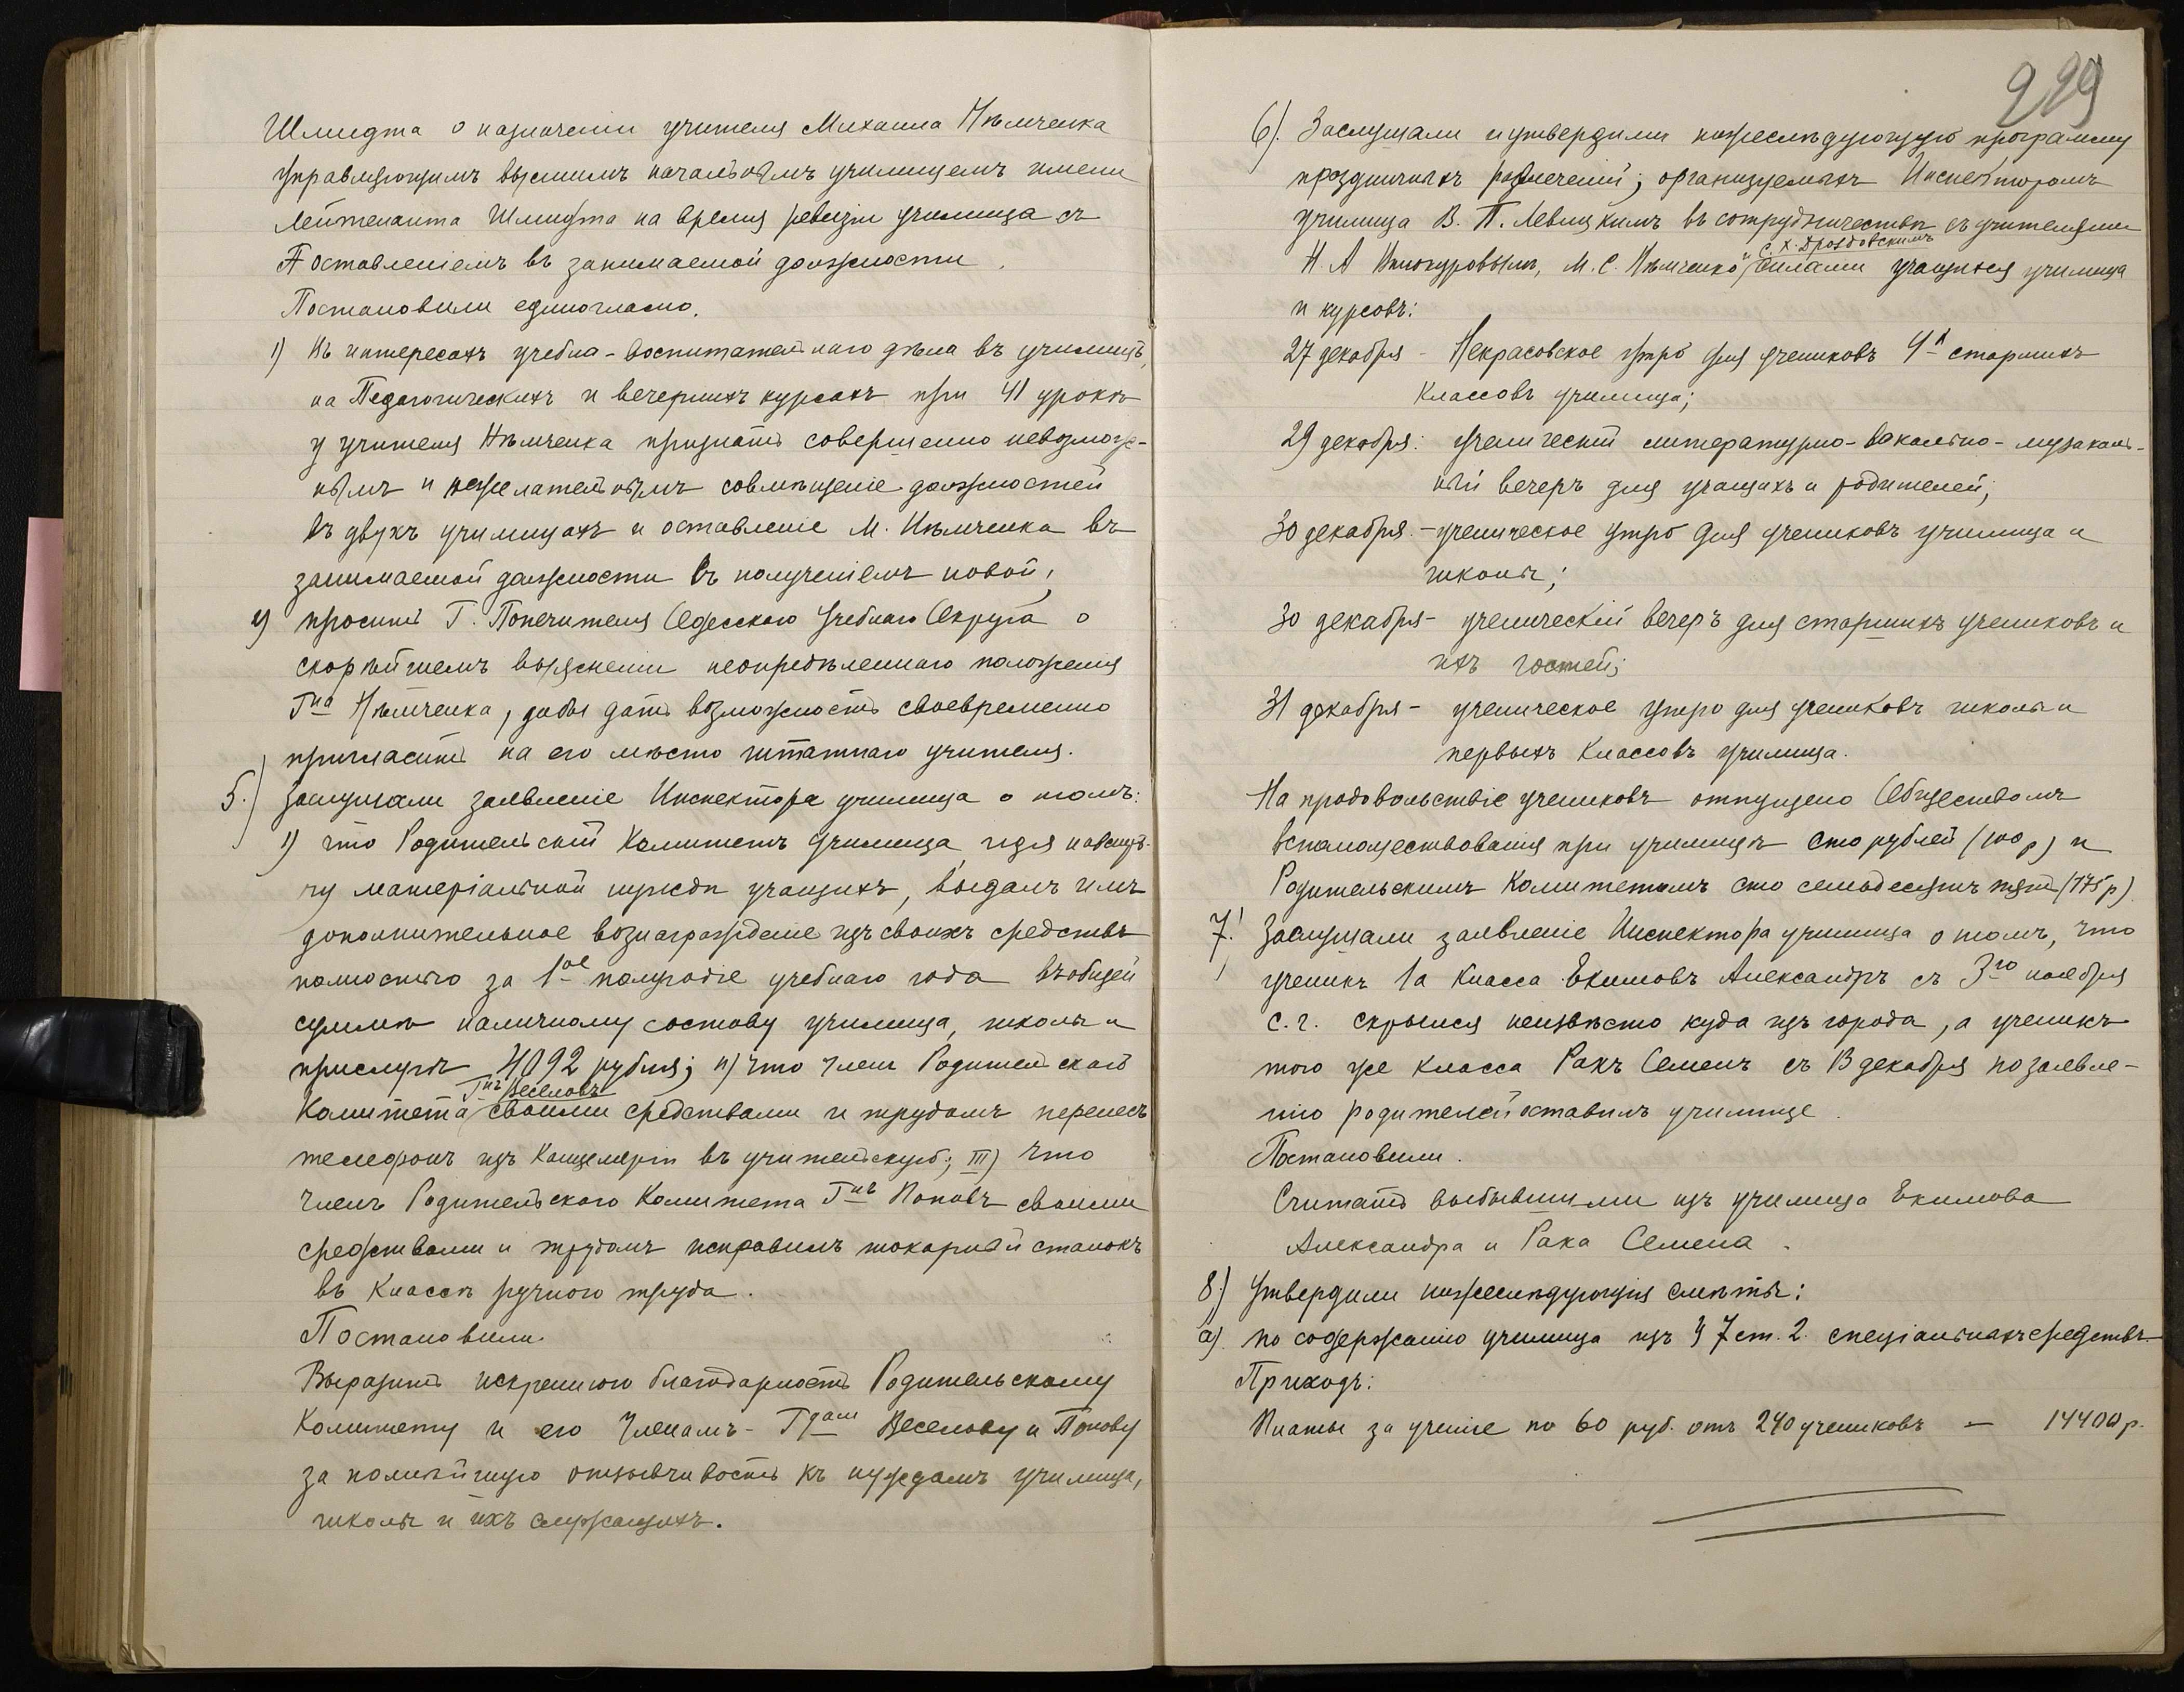 Шмидта о назначеніи учителя Михаила Нѣмченка
управляющимъ высшимъ начальнымъ училищемъ имени
Лейтенанта Шмидта на время ревизіи училища съ
оставленіемъ въ занимаемой должности.
Постановили единогласно.
1) Въ интересахъ учебно-воспитательнаго дѣла въ училищѣ,
на Педагогическихъ и вечернихъ курсахъ при 41 урокѣ
у учителя Нѣмченка признать совершенно невозмож-
нымъ и нежелательнымъ совмѣщеніе должностей
въ двухъ училищахъ и оставленіе М. Нѣмченка въ
занимаемой должности съ полученіемъ новой,
2) просить Г. Попечителя Одесскаго Учебнаго Округа о
скорѣйшемъ выясненіи неопредѣленнаго положенія
Г-на Нѣмченка, дабы дать возможность своевременно
пригласить на его мѣсто штатнаго учителя.
5.) Заслушали заявленіе Инспектора училища о томъ:
1) что Родительскій Комитетъ училища, идя навстрѣ-
чу матеріальной нуждѣ учащихъ, выдалъ имъ
дополнительное вознагражденіе изъ своихъ средствъ
полностью за 1-ое полугодіе учебнаго года въ общей
суммѣ наличному составу училища, школы и
прислугѣ 4092 рубля; II) что Членъ Родительскаго
Г-нъ Веселовъ
Комитета своими средствами и трудомъ перенесъ
телефонъ изъ Канцеляріи въ учительскую; III) что
Членъ Родительскаго Комитета Г-нъ Поповъ своими
средствами и трудомъ исправилъ токарный станокъ
въ Классѣ ручного труда.
Постановили.
Выразить искреннюю благодарность Родительскому
Комитету и его Членамъ - Г-дамъ Веселову и Попову
за полнѣйшую отзывчивость къ нуждамъ училища,
школы и ихъ служащихъ.
299
6). Заслушали и утвердили нижеслѣдующую программу
праздничныхъ развлеченій, организуемыхъ Инспекторомъ
училища В. П. Левицкимъ въ сотрудничествѣ съ учителями
и С. Х. Дроздовскимъ
Н. А. Винокуровымъ, М. С. Нѣмченко силами учащихся училища
и курсовъ:
27 декабря - Некрасовское утро для учениковъ 4-х старшихъ
Классовъ училища;
29 декабря: ученическій литературно-вокально-музыкаль-
ный вечеръ для учащихъ и родителей;
30 декабря. - ученическое утро для учениковъ училища и
школы;
30 декабря - ученическій вечеръ для старшихъ учениковъ и
ихъ гостей;
31 декабря - ученическое утро для учениковъ школы и
первыхъ Классовъ училища.
На продовольствіе учениковъ отпущено Обществомъ
вспомоществованія при училищѣ сто рублей (100 р) и
Родительскимъ Комитетомъ сто семьдесятъ пять (175 р).
7.) Заслушали заявленіе Инспектора училища о томъ, что
ученикъ 1а Класса Екимовъ Александръ съ 3-го ноября
с. г. скрылся неизвѣстно куда изъ города, а ученикъ
того же Класса Ракъ Семенъ съ 13 декабря по заявле-
нію родителей оставилъ училище.
Постановили.
Считать выбывшими изъ училища Екимова
Александра и Рака Семена.
8.) Утвердили нижеслѣдующія смѣты:
а). по содержанію училища изъ § 7 ст. 2. спеціальныхъ средствъ.
Приходъ:
Платы за ученіе по 60 руб. отъ 240 учениковъ — 14400 р.